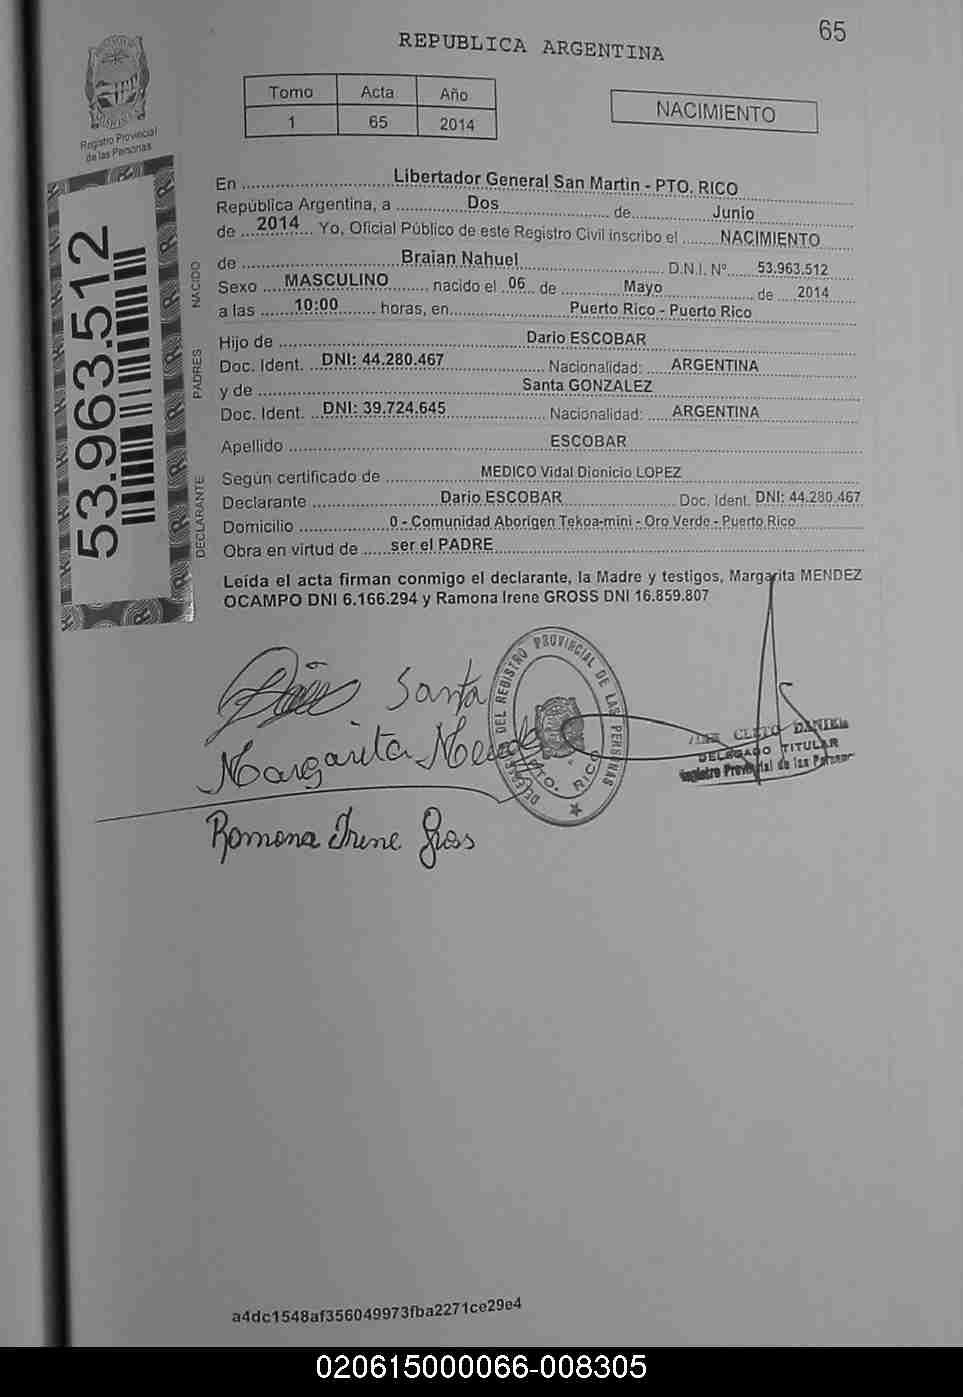 65
REPUBLICA ARGENTINA
Tomo Acta Año
1 65 2014
NACIMIENTO
Registro Provincial
de las Personas
53.963.512
En Libertador General San Martin - PTO. RICO
República Argentina, a Dos de Junio
de 2014 Yo, Oficial Público de este Registro Civil inscribo el NACIMIENTO
NACIDO
de Braian Nahuel D.N.I. Nº 53.963.512
Sexo MASCULINO nacido el 06 de Mayo de 2014
a las 10:00 horas, en Puerto Rico - Puerto Rico
PADRES
Hijo de Dario ESCOBAR
Doc. Ident. DNI: 44.280.467 Nacionalidad: ARGENTINA
y de Santa GONZALEZ
Doc. Ident. DNI: 39.724.645 Nacionalidad: ARGENTINA
Apellido ESCOBAR
DECLARANTE
Según certificado de MEDICO Vidal Dionicio LOPEZ
Declarante Dario ESCOBAR Doc. Ident. DNI: 44.280.467
Domicilio 0 - Comunidad Aborigen Tekoa-mini - Oro Verde - Puerto Rico
Obra en virtud de ser el PADRE
Leída el acta firman conmigo el declarante, la Madre y testigos, Margarita MENDEZ
OCAMPO DNI 6.166.294 y Ramona Irene GROSS DNI 16.859.807
Santa
Margarita
Ramona Irene Gross
DEL REGISTRO PROVINCIAL DE LAS PERSONAS
PTO. RICO
CLETO DANIEL
DELEGADO TITULAR
Registro Provincial de las Personas
a4dc1548af356049973fba2271ce29e4
020615000066-008305